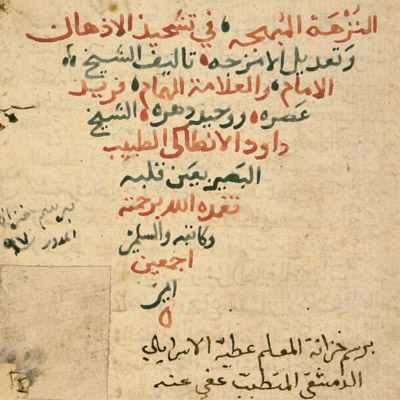 النزهة المبهجه في تشحيذ الاذهان
وتعديل الامزجه تاليف الشيخ
الامام والعلامة الهمام فريد
عصره ووحيد دهره الشيخ
داود الانطاكي الطبيب
البصير بعين قلبه
تغمده الله برحمته
وكاتبه والمسلمين
اجمعين
امين
برسم خزانة
برسم خزانة المعلم عطية الاسرايلي
الدمشقي المتطبب عفي عنه